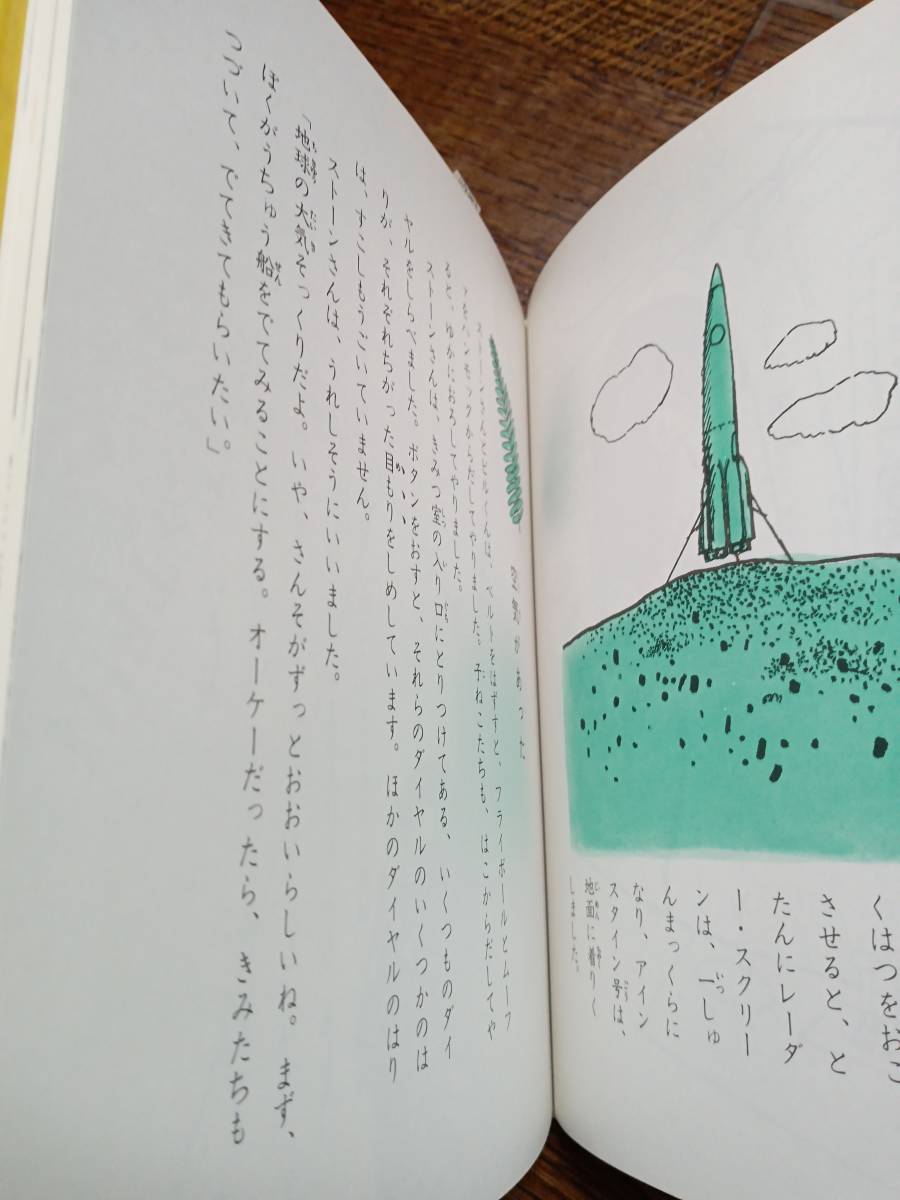 くはつをおこ
させると、と
たんにレーダ
ー・スクリー
ンは、一しゅ
んまっくらに
なり、アイン
スタイン号は、
地面に着りく
しました。
空気があった
ストーンさんとビルくんは、ベルトをはずすと、フライボールとムーフ
をハンモックからだしてやりました。子ねこたちも、はこからだしてや
ると、ゆかにおろしてやりました。
ストーンさんは、きみつ室の入り口にとりつけてある、いくつものダイ
ヤルをしらべました。ボタンをおすと、それらのダイヤルのいくつかのは
りが、それぞれちがった目もりをしめしています。ほかのダイヤルのはり
は、すこしもうごいていません。
ストーンさんは、うれしそうにいいました。
「地球の大気そっくりだよ。いや、さんそがずっとおおいらしいね。まず、
ぼくがうちゅう船をでてみることにする。オーケーだったら、きみたちも
つづいて、でてきてもらいたい。」